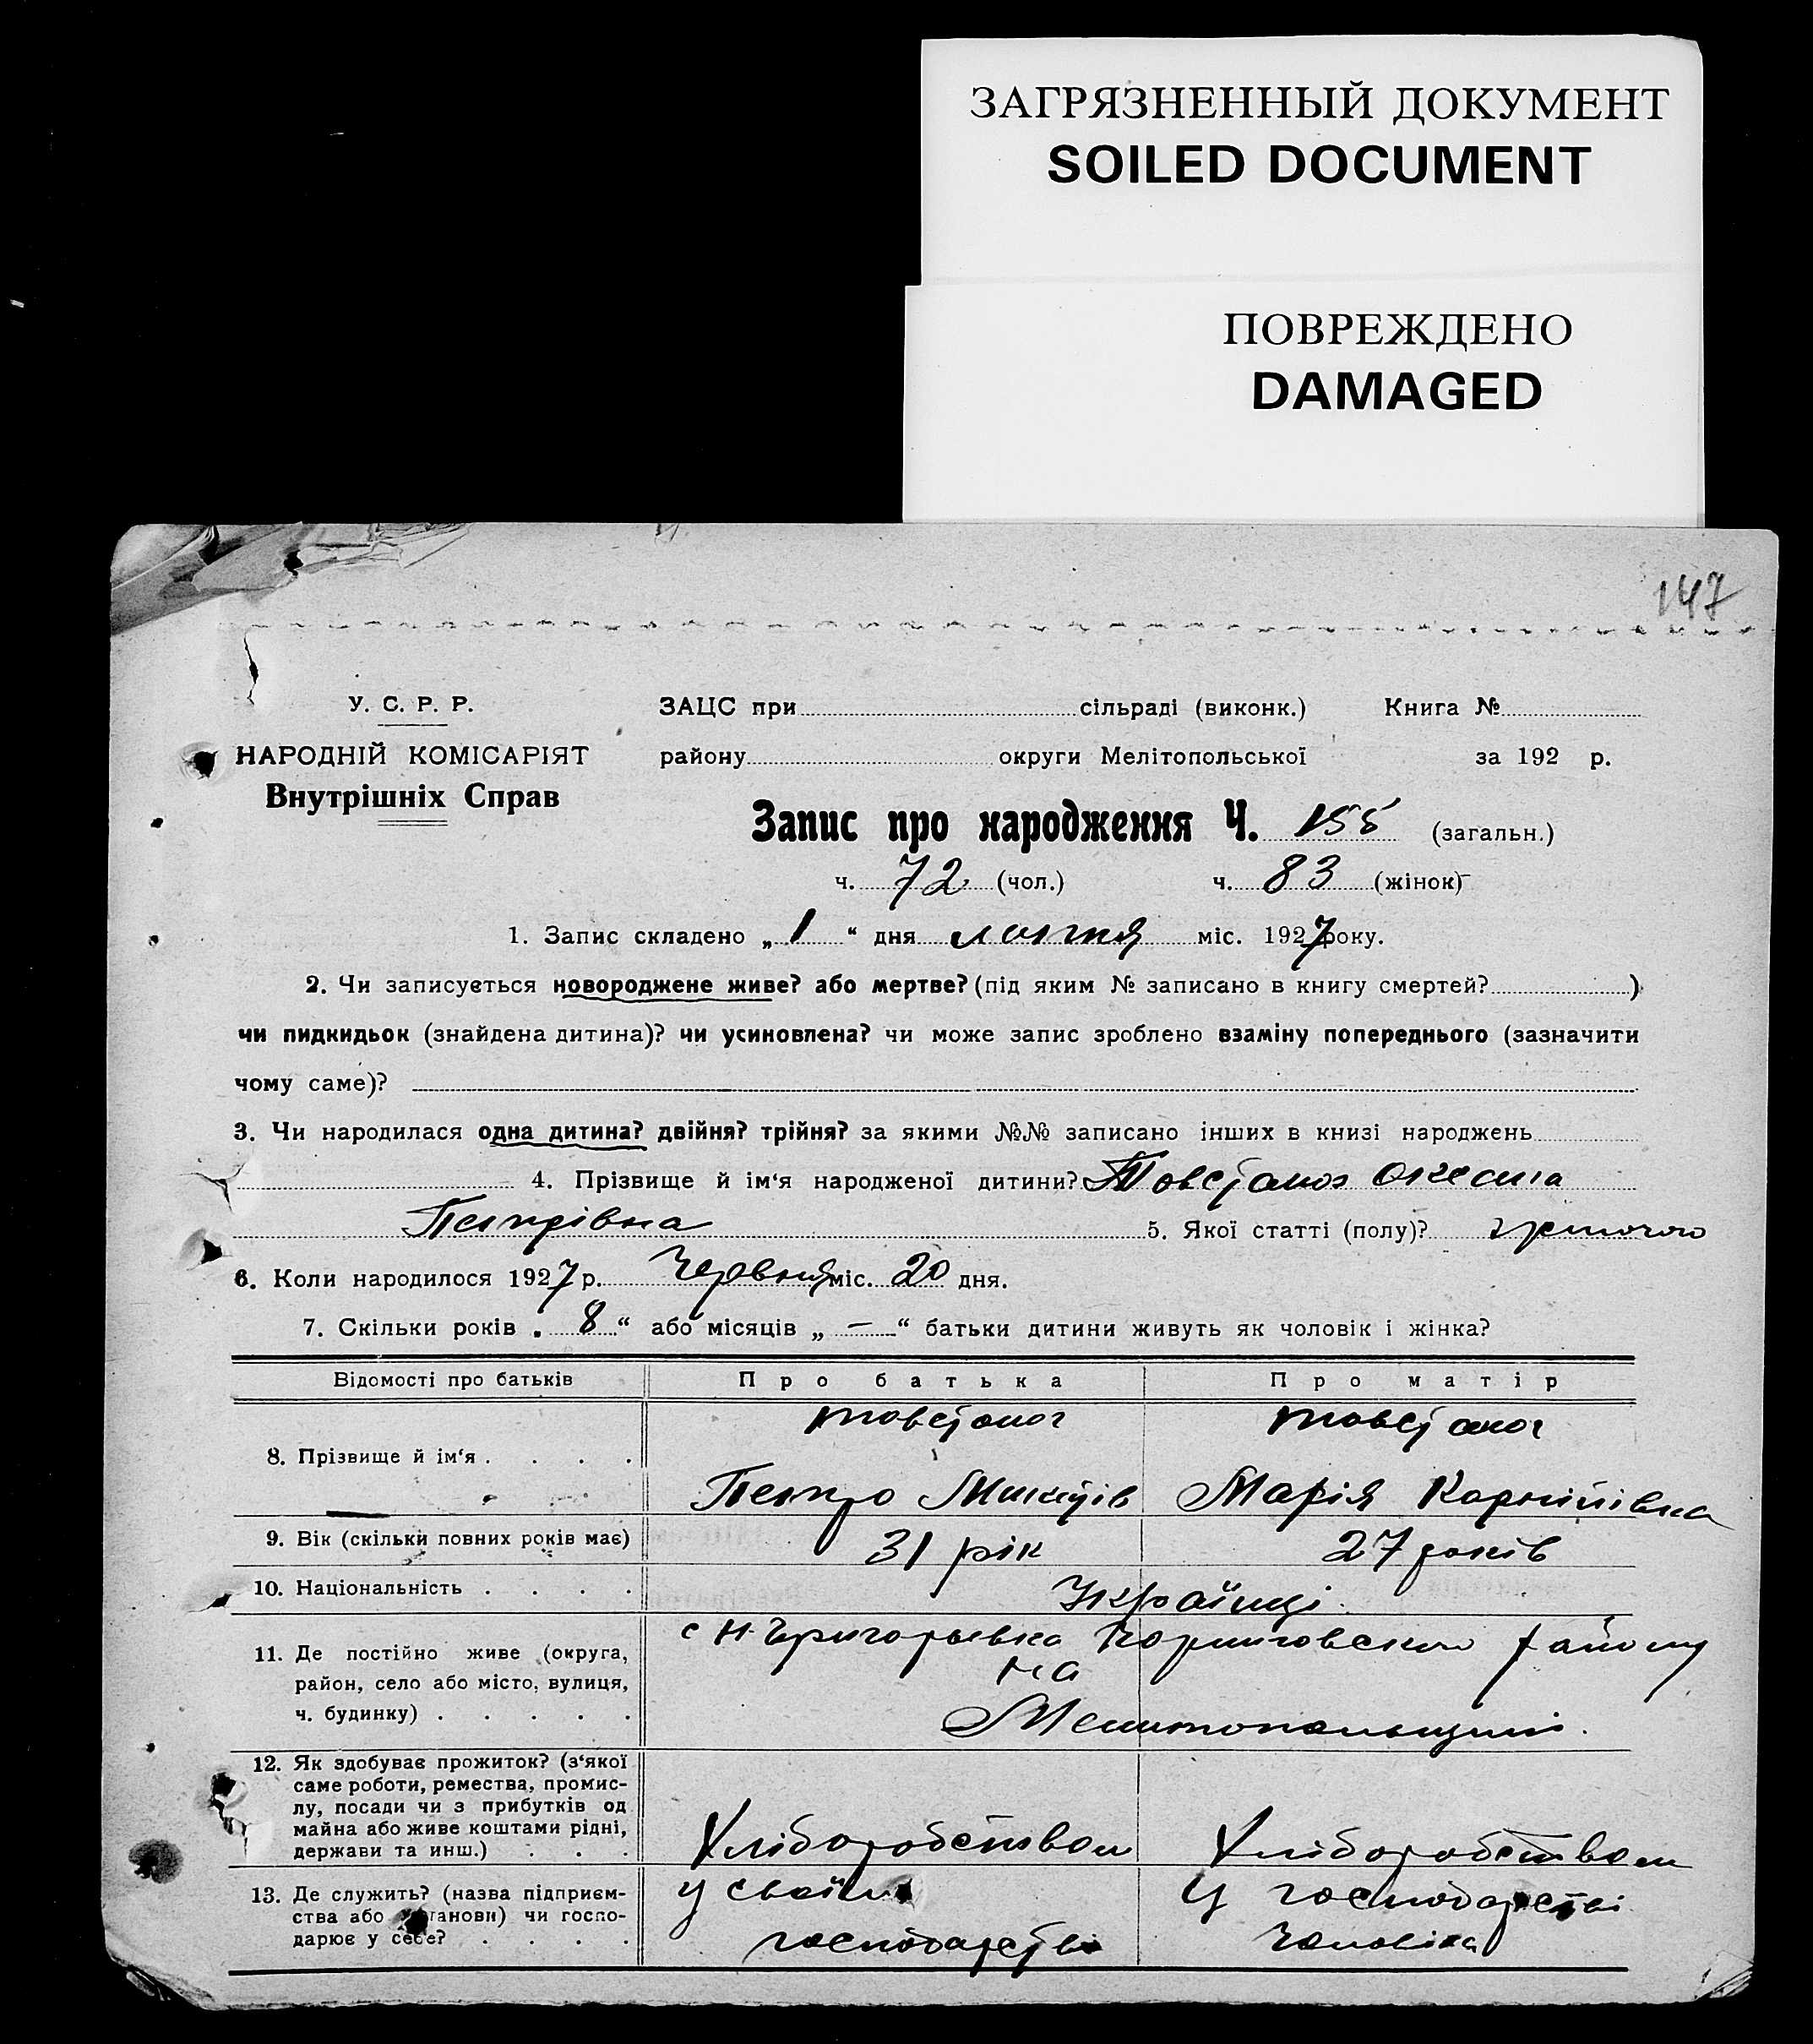 ЗАГРЯЗНЕННЫЙ ДОКУМЕНТ
SOILED DOCUMENT
ПОВРЕЖДЕНО
DAMAGED
147
У. С. Р. Р.
ЗАЦС при сільраді (виконк.) Книга №
НАРОДНІЙ КОМІСАРІЯТ
району округи Мелітопольської за 192 р.
Внутрішніх Справ
Запис про народження Ч. 155 (загальн.)
ч. 72 (чол.) ч. 83 (жінок)
1. Запис складено „ 1 “ дня липня міс. 1927 року.
2. Чи записується новороджене живе? або мертве? (під яким № записано в книгу смертей? )
чи пидкидьок (знайдена дитина)? чи усиновлена? чи може запис зроблено взаміну попереднього (зазначити
чому саме)?
3. Чи народилася одна дитина? двійня? трійня? за якими №№ записано інших в книзі народжень
4. Прізвище й ім‘я народженої дитини?
Петрівна 5. Якої статті (полу)?
6. Коли народилося 1927 р. Червня міс. 20 дня.
7. Скільки років „ 8 “ або місяців „ — “ батьки дитини живуть як чоловік і жінка?
Відомості про батьків Про батька Про матір
8. Прізвище й ім‘я .
Петро Марія Корніївна
9. Вік (скільки повних років має) 31 рік 27 років
10. Національність . Українці.
11. Де постійно живе (округа, с Н-Григорьевка району
район, село або місто, вулиця, на
ч. будинку) . Мелитопольщині.
12. Як здобуває прожиток? (з‘якої
саме роботи, ремества, промис-
лу, посади чи з прибутків од
майна або живе коштами рідні,
держави та инш.) . Хліборобством Хліборобством
13. Де служить? (назва підприєм- у своїм у господарстві
ства або установи) чи госпо-
дарює у себе? . господарстві чоловіка